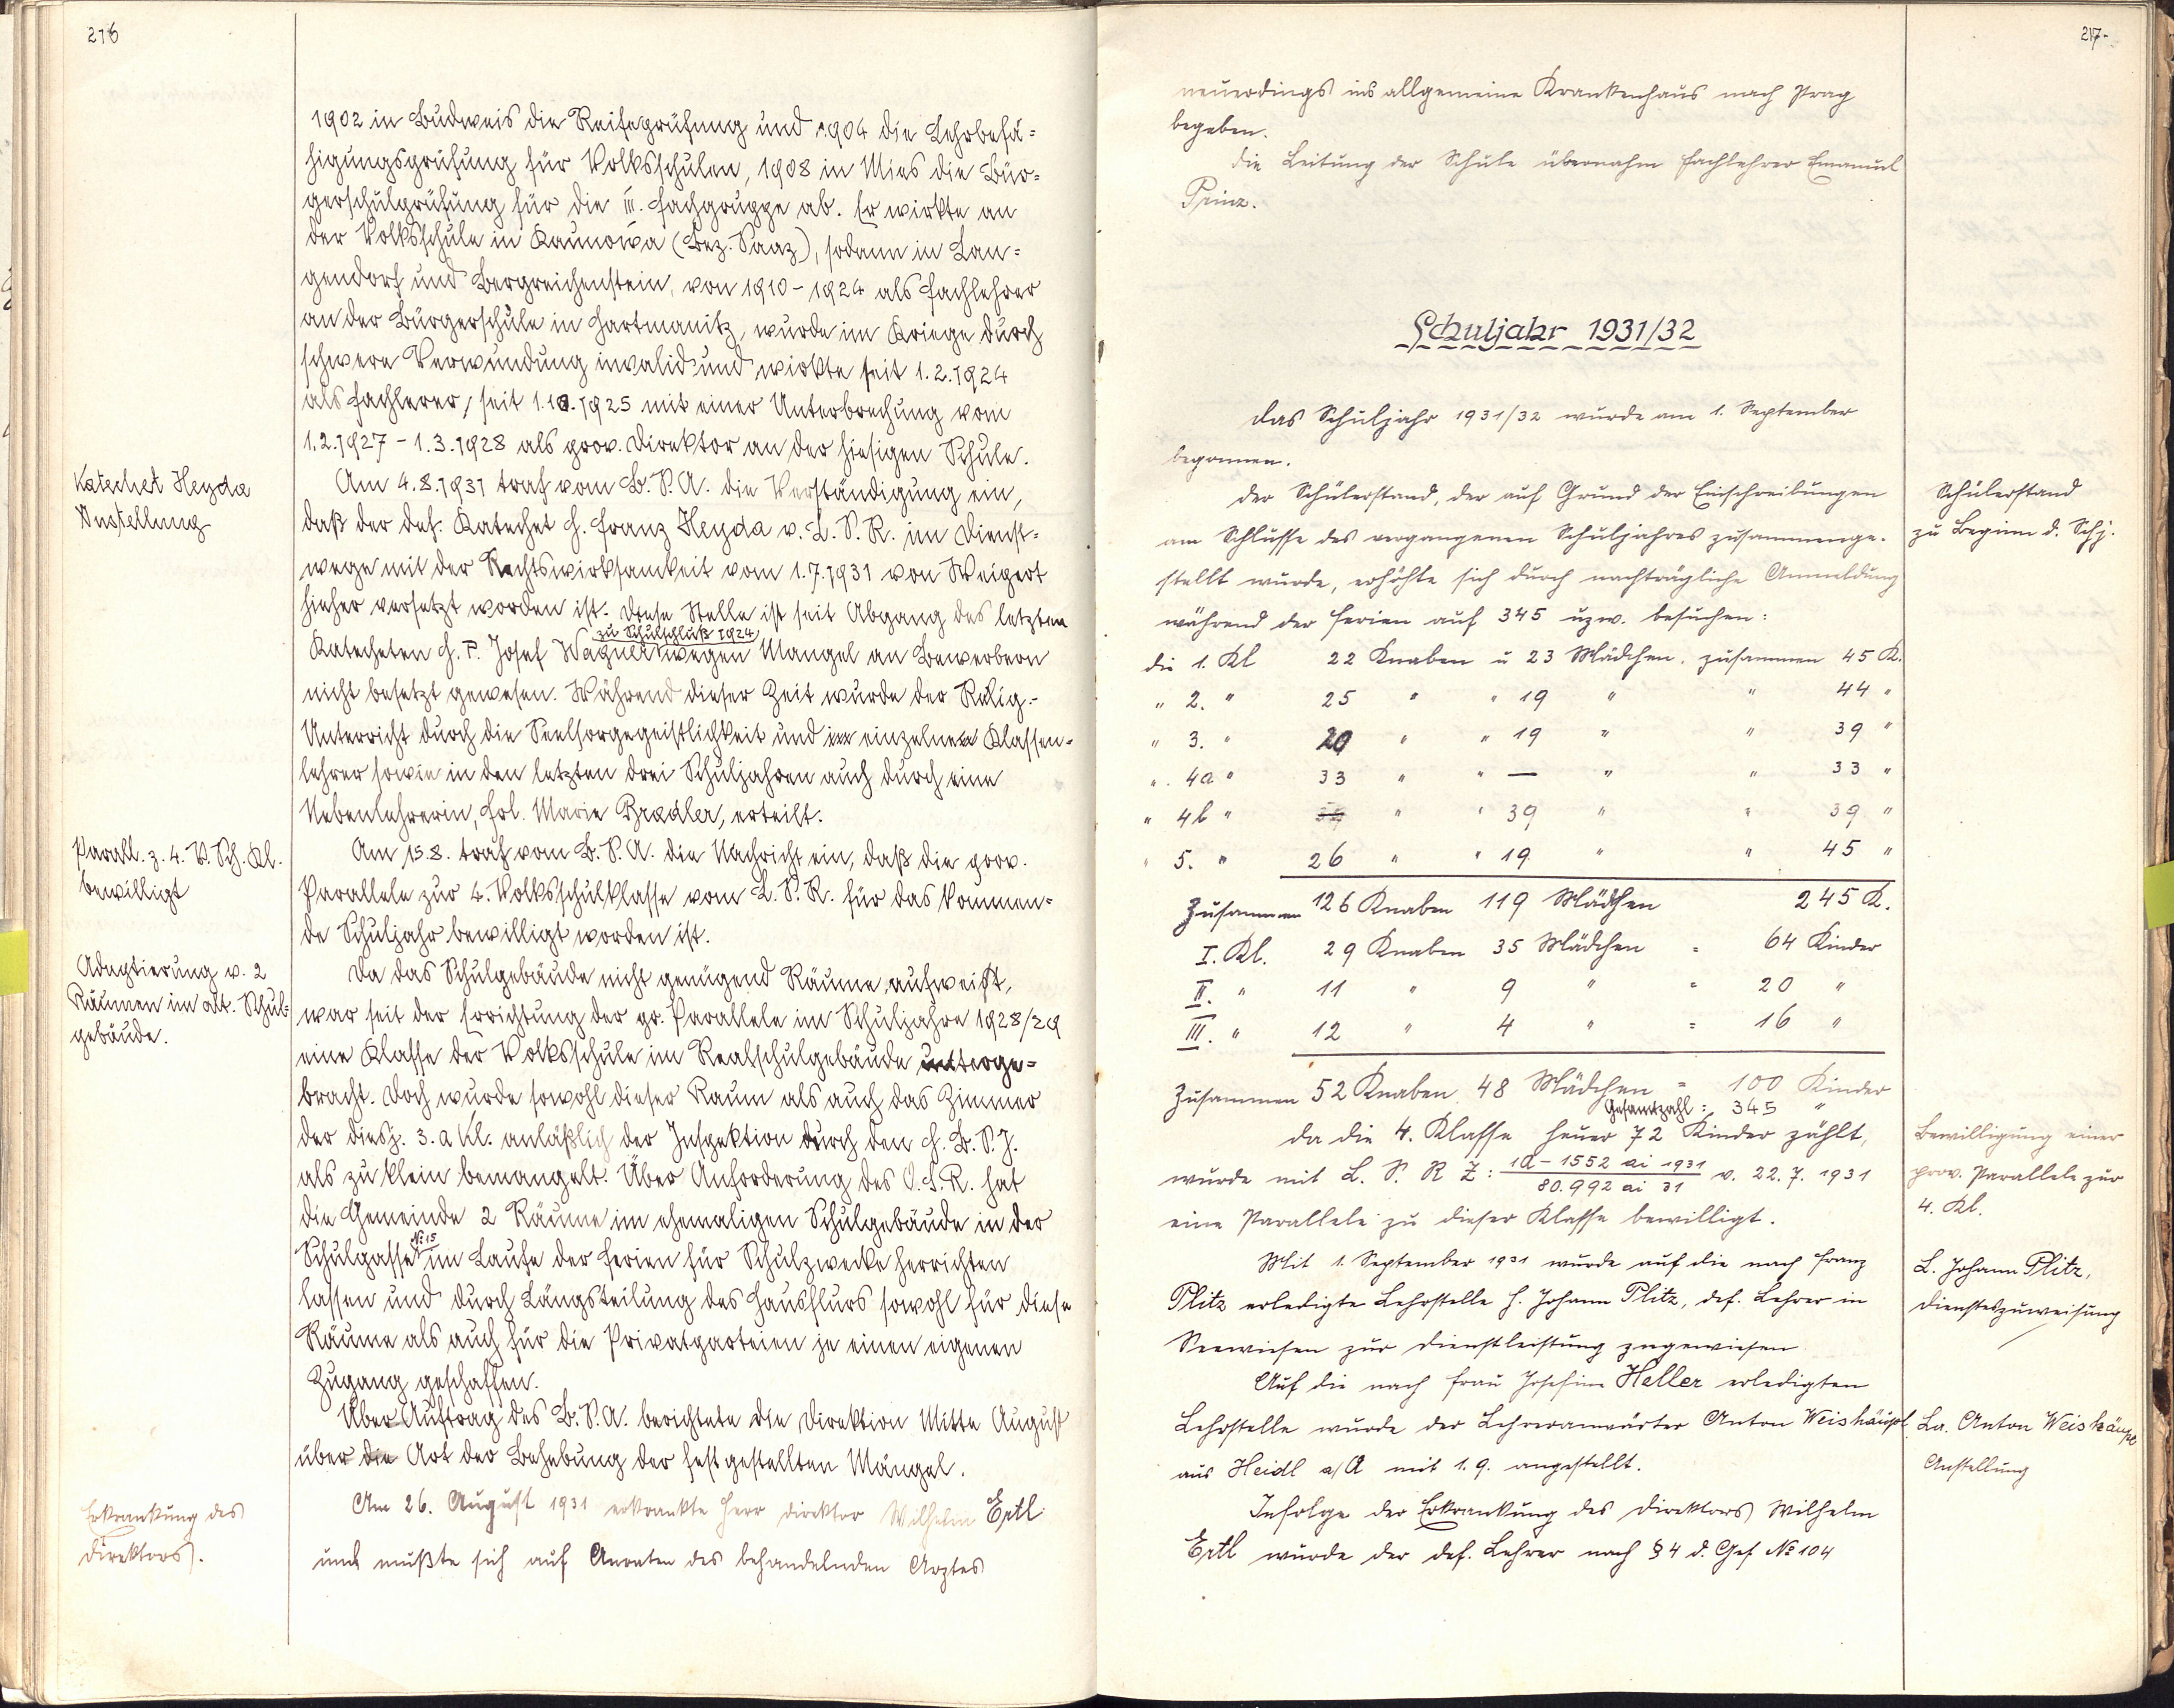 216
1902 in Budweis die Reifeprüfung und 1904 die Lehrbefä-
higungsprüfung für Volksschulen, 1908 in Mies die Bür-
gerschulprüfung für die III. Fachgruppe ab. Er wirkte an
der Volksschule in Kaunowa (Bez. Saaz), sodann in Lan-
gendorf und Bergreichenstein, von 1910-1924 als Fachlehrer
an der Bürgerschule in Hartmanitz, wurde im Kriege durch
schwere Verwundung invalid und wirkte seit 1.2.1924
als Fachlerer, seit 1.10.1925 mit einer Unterbrechung vom
1.2.1927 - 1.3.1928 als prov. Direktor an der hiesigen Schule.
Katechet Heyda
Anstellung
Am 4.8.1931 traf vom B.S.A. die Verständigung ein,
daß der def. Katechet H. Franz Heyda v. L.S.R. im Dienst-
wege mit der Rechtswirksamkeit vom 1.7.1931 von Weigert
hieher versetzt worden ist. Diese Stelle ist seit Abgang des letzten
zu Schulschluß 1924
Katecheten H. P. Josef Wagner wegen Mangel an Bewerbern
nicht besetzt gewesen. Während dieser Zeit wurde der Relig.-
Unterricht durch die Seelsorgegeistlichkeit und einzelne Klassen-
lehrer sowie in den letzten drei Schuljahren auch durch eine
Nebenlehrerin, Frl. Marie Bradler, erteilt.
Parall. z. 4. V. Sch. Kl.
bewilligt
Am 15.8. traf vom B.S.A. die Nachricht ein, daß die prov.
Parallele zur 4. Volksschulklasse vom L.S.R. für das kommen-
de Schuljahr bewilligt worden ist.
Adaptierung v. 2
Räumen im alt. Schul-
gebäude.
Da das Schulgebäude nicht genügend Räume aufweist,
war seit der Errichtung der pr. Parallele im Schuljahre 1928/29
eine Klasse der Volksschule im Realschulgebäude unterge-
bracht. Doch wurde sowohl dieser Raum als auch das Zimmer
der diesj. 3. a Kl. anläßlich der Inspektion durch den H. B.S.I.
als zu klein bemangelt. Über Anforderung des O.S.R. hat
die Gemeinde 2 Räume im ehemaligen Schulgebäude in der
Schulgasse № 15 im Laufe der Ferien für Schulzwecke herrichten
lassen und durch Längsteilung des Hausflurs sowohl für diese
Räume als auch für die Privatparteien je einen eigenen
Zugang geschaffen.
Über Auftrag des B.S.A. berichtete die Direktion Mitte August
über die Art der Behebung der festgestellten Mängel.
Erkrankung des
Direktors.
Am 26. August 1931 erkrankte Herr Direktor Wilhelm Ertl
und mußte sich auf Anraten des behandelnden Arztes
217-
neuerdings ins allgemeine Krankenhaus nach Prag
begeben.
Die Leitung der Schule übernahm Fachlehrer Emanuel
Prinz.
Schuljahr 1931/32
Das Schuljahr 1931/32 wurde am 1. September
begonnen.
Schülerstand
zu Beginn d. Schj.
Der Schülerstand, der auf Grund der Einschreibungen
am Schlusse des vergangenen Schuljahres zusammenge-
stellt wurde, erhöhte sich durch nachträgliche Anmeldung
während der Ferien auf 345 uzw. besuchen:
die 1. Kl 22 Knaben u 23 Mädchen, zusammen 45 K.
" 2. " 25 " " 19 " " 44 "
" 3. " 20 " " 19 " " 39 "
" 4a " 33 " " — " " 33 "
" 4b " " " 39 " " 39 "
" 5. " 26 " " 19 " " 45 "
Zusammen 126 Knaben 119 Mädchen 245 K.
I. Kl. 29 Knaben 35 Mädchen = 64 Kinder
II. " 11 " 9 " = 20 "
III. " 12 " 4 " = 16 "
Zusammen 52 Knaben 48 Mädchen = 100 Kinder
Gesamtzahl: 345 "
Bewilligung einer
prov. Parallele zur
4. Kl.
Da die 4. Klasse heuer 72 Kinder zählt,
wurde mit L. S. R Z: 1a-1552 ai 1931 / 80.992 ai 31 v. 22.7.1931
eine Parallele zu dieser Klasse bewilligt.
L. Johann Plitz,
Dienstzuweisung
Mit 1. September 1931 wurde auf die nach Franz
Plitz erledigte Lehrstelle H. Johann Plitz, def. Lehrer in
Seewiesen zur Dienstleistung zugewiesen
Auf die nach Frau Josefine Heller erledigten
Lehrstelle wurde der Lehreranwärter Anton Weishäupl
La. Anton Weishäupl
Anstellung
aus Heidl a/A mit 1.9. angestellt.
Infolge der Erkrankung des Direktors Wilhelm
Ertl wurde der def. Lehrer nach § 4 d. Ges № 104